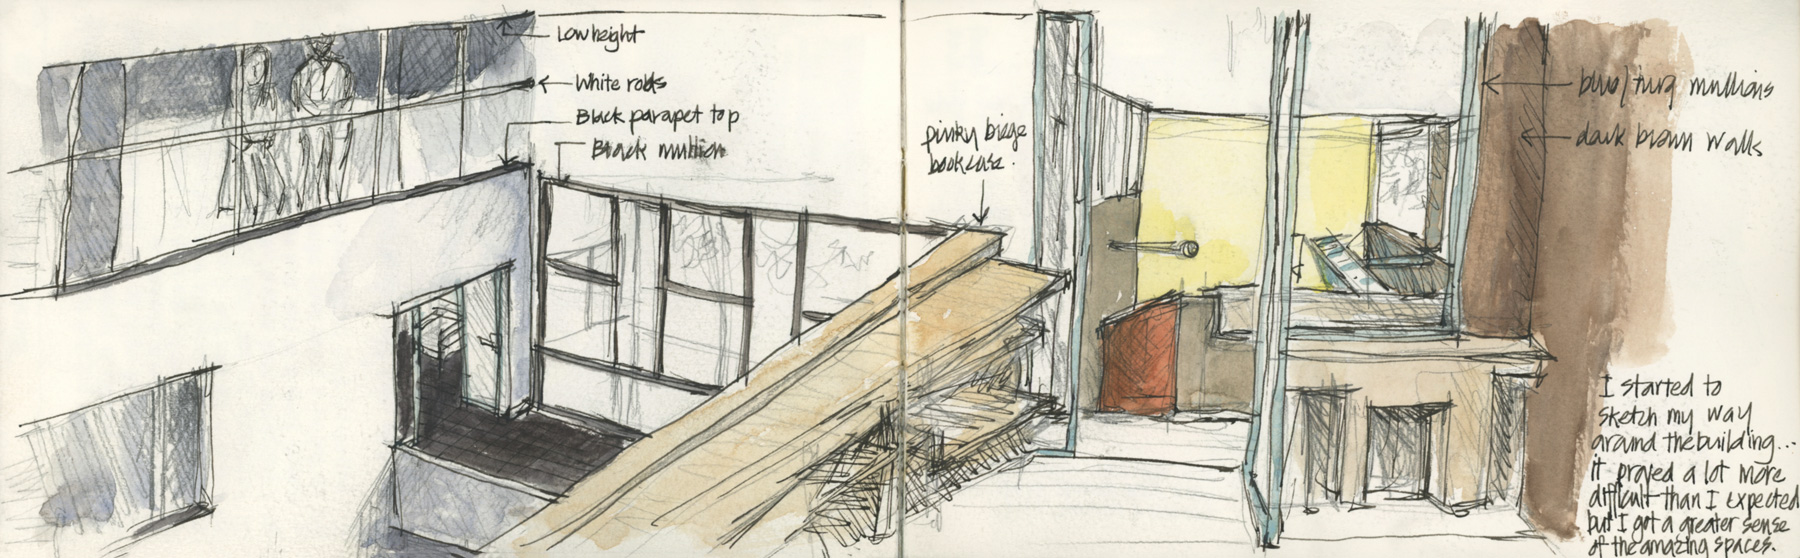 Low height
White rods
Black parapet top
Black mullion
pinky biege
bookcase.
blue/turq mullions
dark brown walls
I started to
sketch my way
around the building...
it proved a lot more
difficult than I expected
but I got a greater sense
of the amazing spaces.